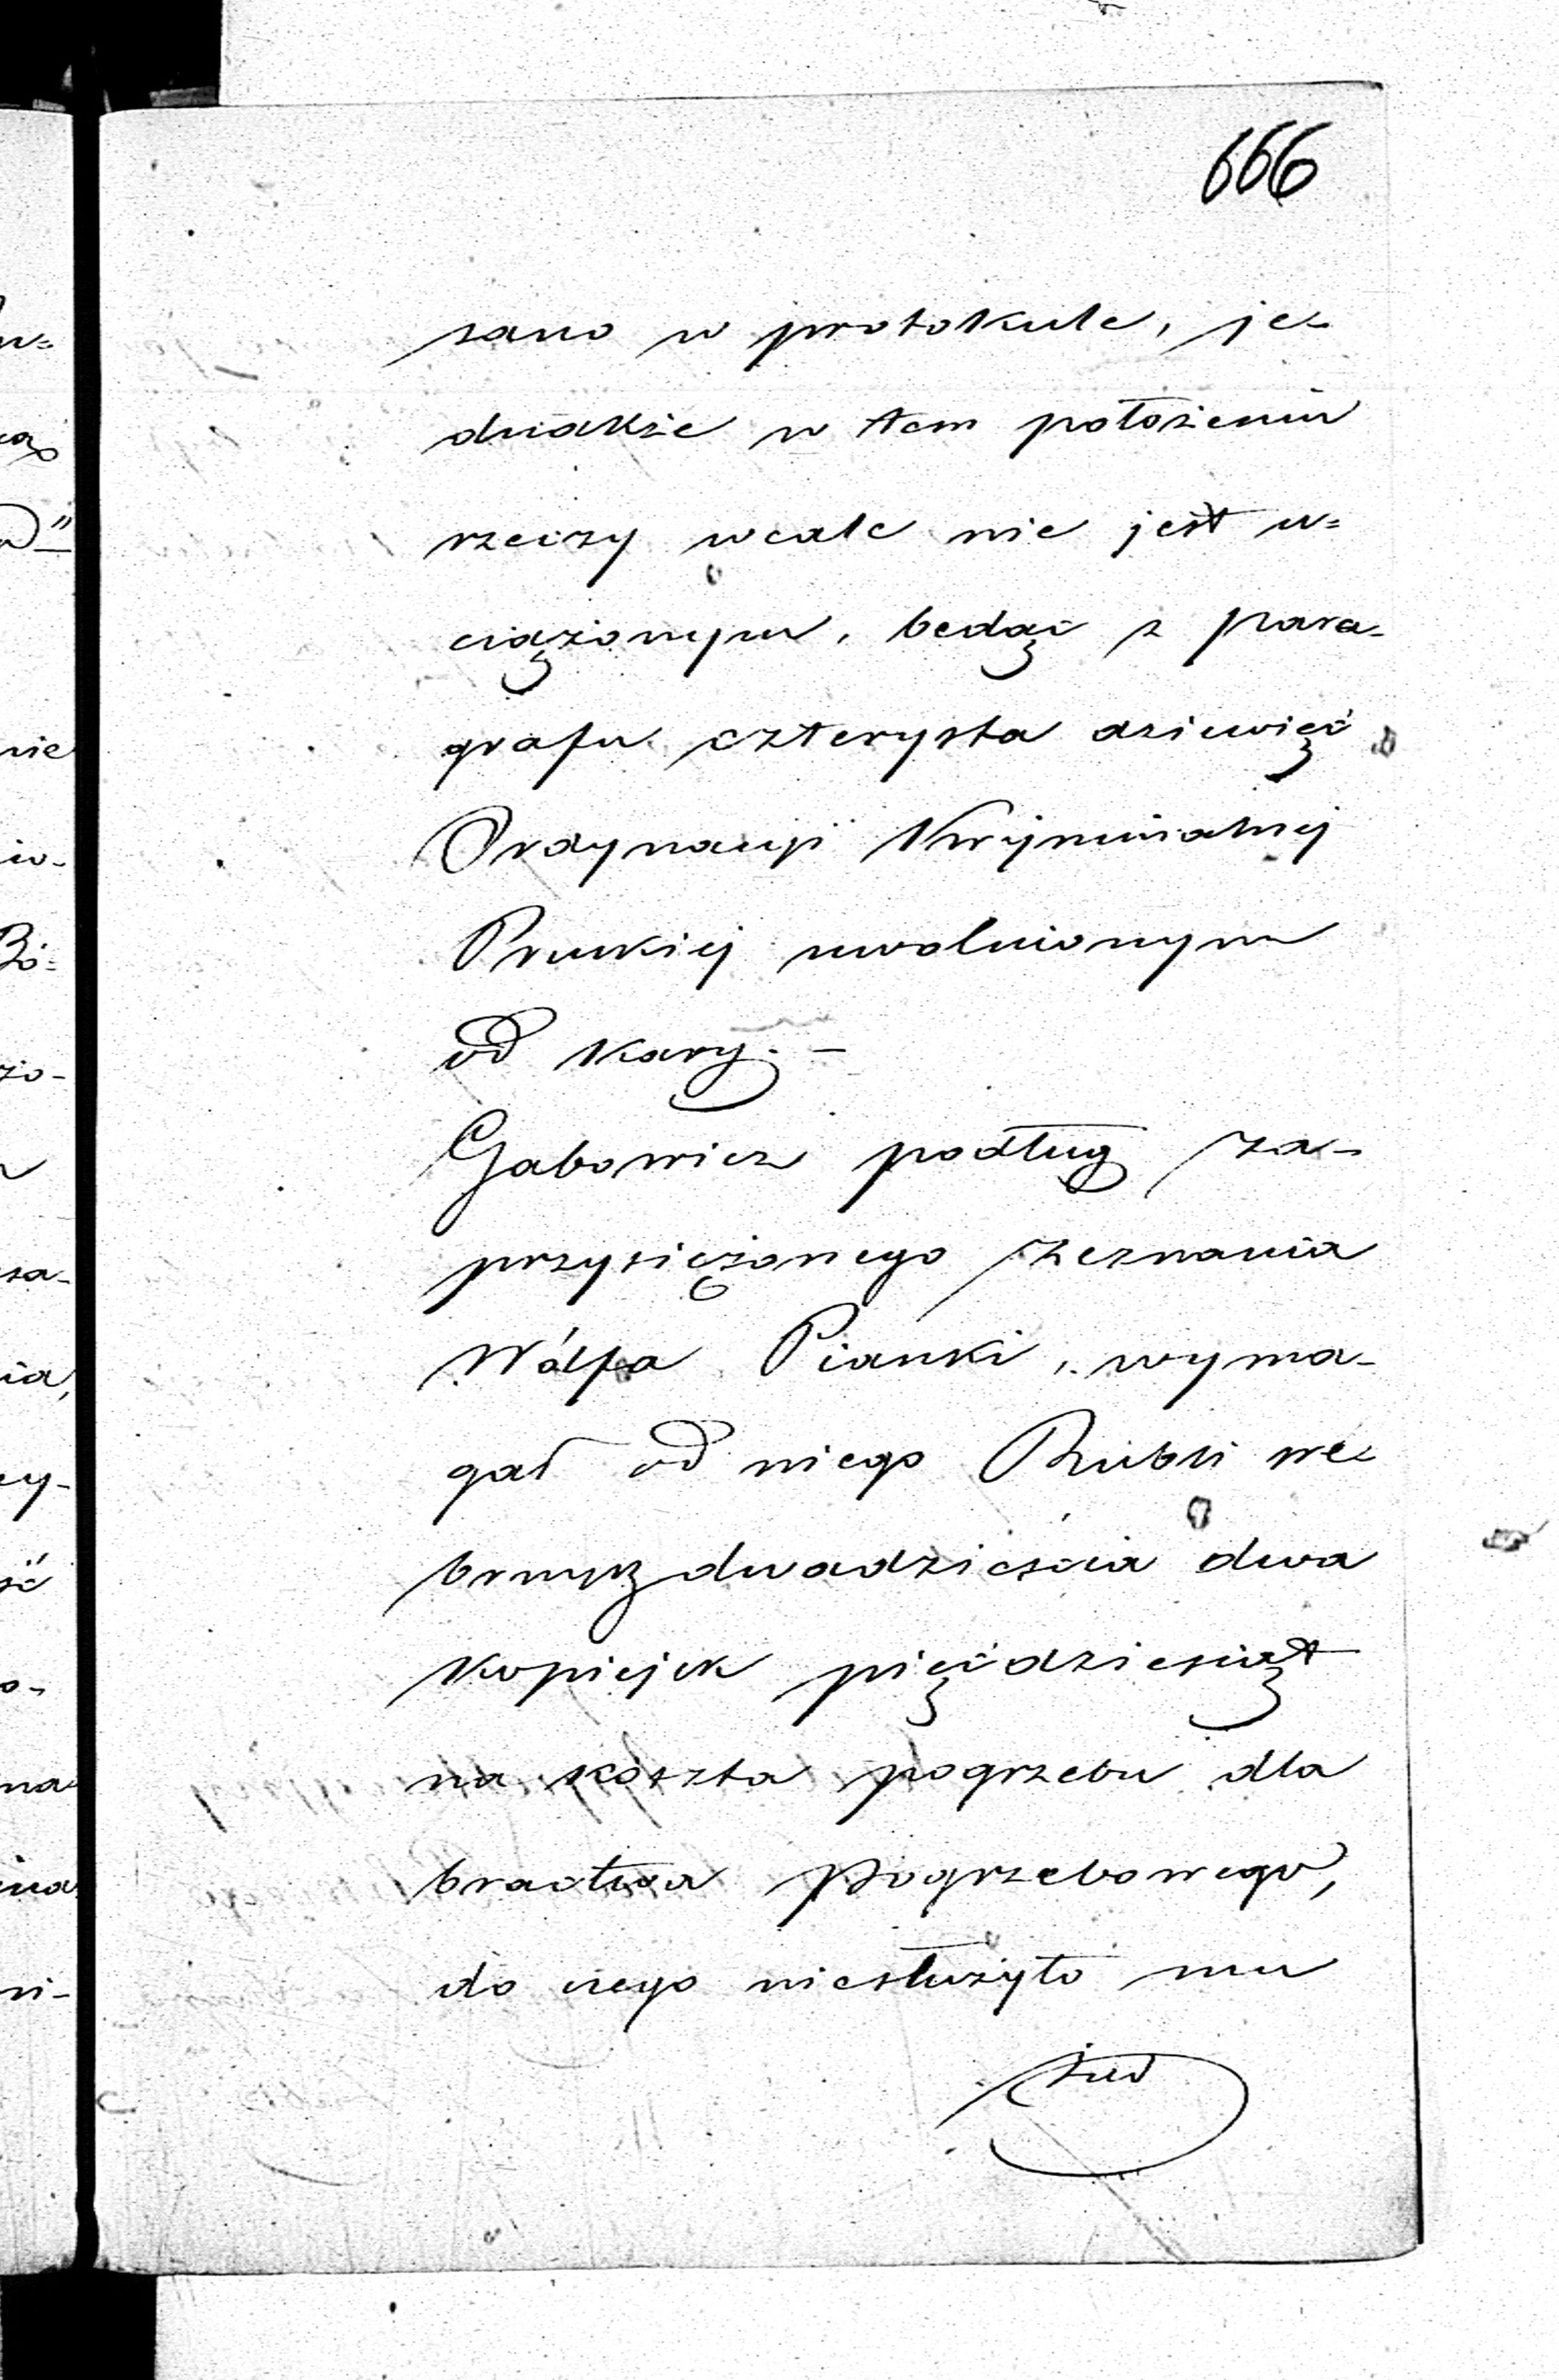 666
sano w protokule, je-
dnakże w tem położeniu
rzeczy wcale nie jest u=
ciążonym, będąc z para-
grafu czterysta dziewięć
Ordynacyi Kryminalnej
Pruskiej uwolnionym
od kary. —
Gabowicz podług za-
przysiężonego zeznania
Wólfa Pianki, wyma-
gał od niego Rubli sre-
brnych dwadzieścia dwa
kopiejek pięćdziesiąt
na koszta pogrzebu dla
bractwa Pogrzebowego,
do czego niesłużyło mu
żad